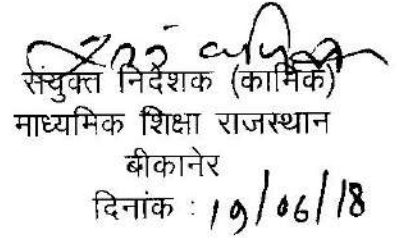 संयुक्त निदेशक (कार्मिक)
माध्यमिक शिक्षा राजस्थान
बीकानेर
दिनांक : 19/06/18